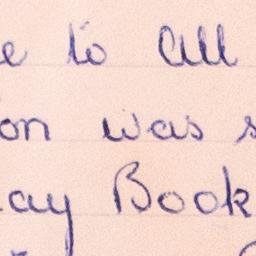 e to all
on was s
ay Book